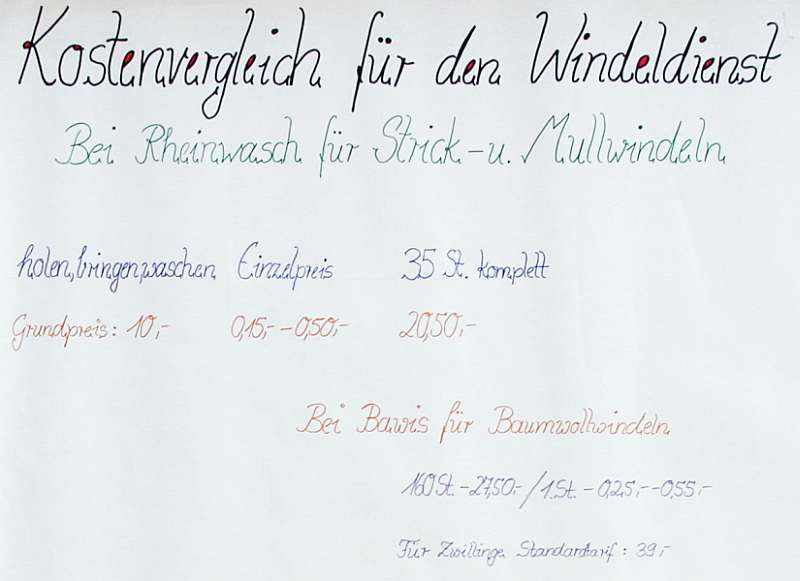 Kostenvergleich für den Windeldienst
Bei Rheinwasch für Strick-u. Mullwindeln
holen, bringen, waschen Einzelpreis 35 St. komplett
Grundpreis: 10,- 0,15,- -0,50,- 20,50,-
Bei Bawis für Baumwollwindeln
160 St. - 27,50,- / 1.St. - 0,25,- -0,55,-
Für Zwillinge Standardtarif : 39,-